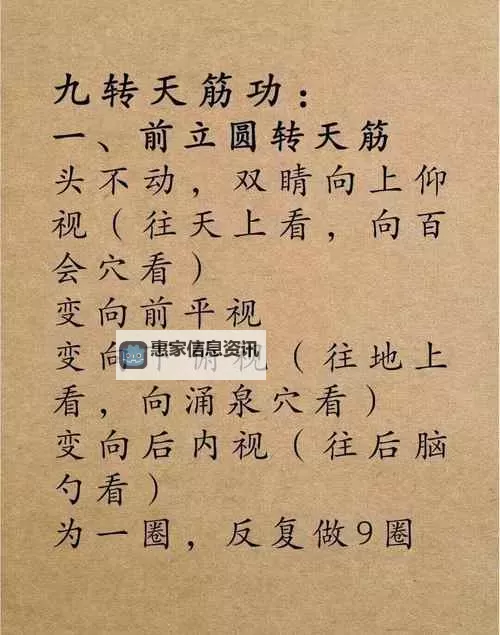 九转天筋功：
一、前立圆转天筋
头不动，双睛向上仰
视（往天上看，向百
会穴看）
变向前平视
惠家信息资讯
变向下俯视（往地上
看，向涌泉穴看）
变向后内视（往后脑
勺看）
为一圈，反复做9圈